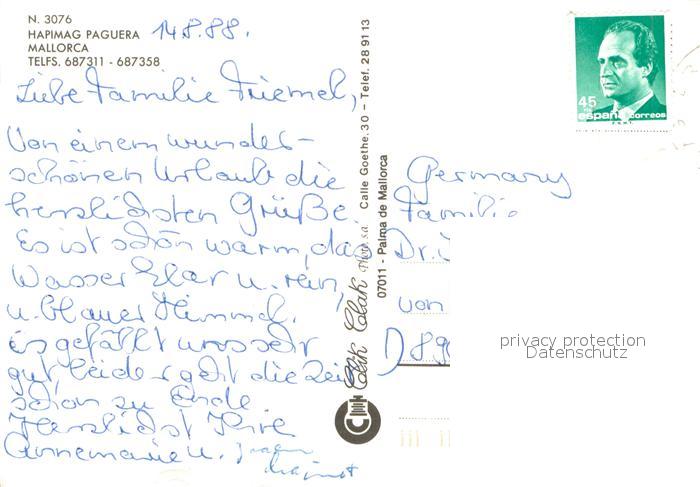 N. 3076
HAPIMAG PAGUERA
MALLORCA
TELFS. 687311 - 687358
14.8.88.
Liebe Familie Triemel,
Von einem wunder-
schönen Urlaub die
herzlichsten Grüße.
Es ist schön warm, das
Wasser klar u. rein,
u. blauer Himmel.
es gefällt uns sehr
gut, leider geht die Zeit
schon zu Ende
Herzlichst Ihre
Annemarie u.
Clik Clak Photo s.a. Calle Goethe, 30 - Telef. 28 91 13
07011 - Palma de Mallorca
45
españa correos
F.N.M.T.
Germany
Familie
Dr.
von
D 89
privacy protection
Datenschutz